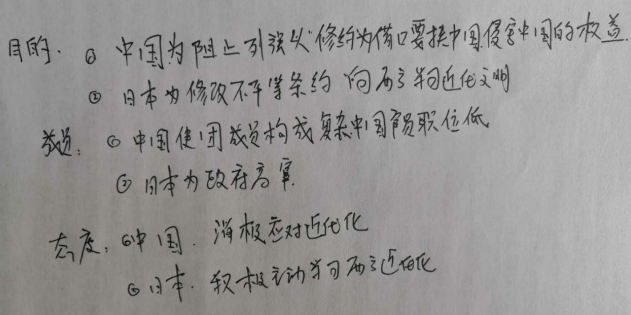 目的. ① 中国为阻止列强以修约为借口要挟中国侵害中国的权益.
② 日本为修改不平等条约 向西方学习近代文明
成员: ① 中国使团成员构成复杂中国官员职位低
② 日本为政府高官.
态度: ①中国. 消极应对近代化
②日本. 积极主动学习西方近代化